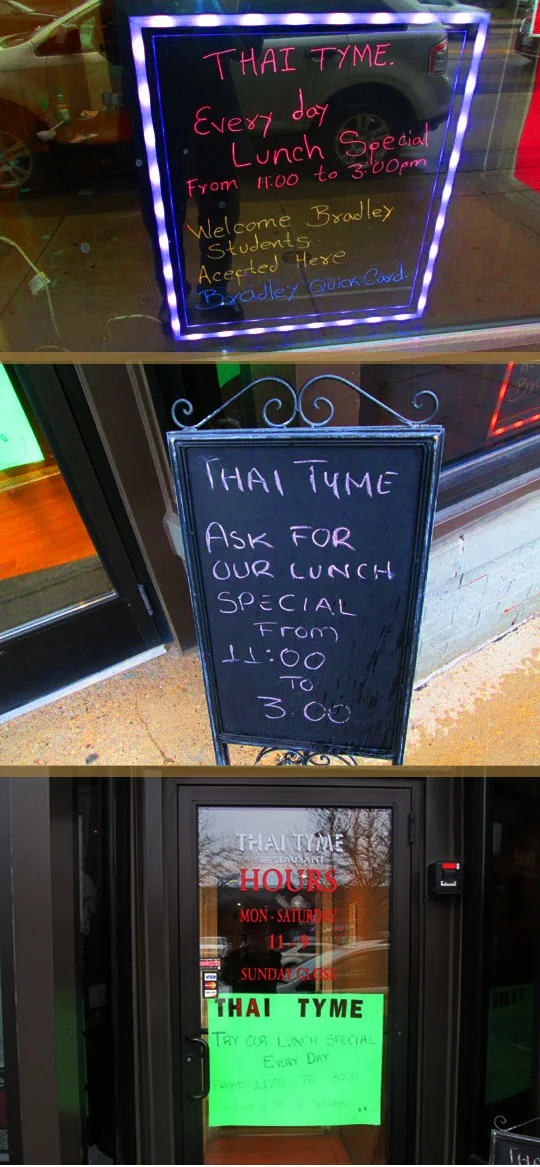 THAI TYME.
Every day
Lunch Special
From 11:00 to 3:00pm
Welcome Bradley
Students.
Acepted Here
Bradley Quick Card.
THAI TYME
ASK FOR
OUR LUNCH
SPECIAL
From
11:00
TO
3.00
THAI TYME
RESTAURANT
HOURS
MON - SATURDAY
11 - 9
SUNDAY CLOSE
VISA
THAI TYME
TRY OUR LUNCH SPECIAL
EVERY DAY
FROM: 11:00 TO 3:00
a lot of